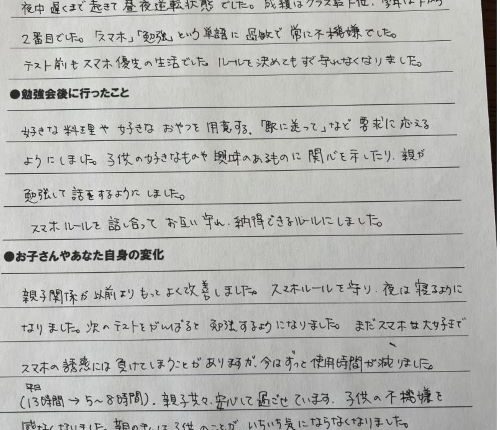 夜中遅くまで起きて昼夜逆転状態でした。成績はクラス最下位、学年は下から
2番目でした。「スマホ」「勉強」という単語に過敏で常に不機嫌でした。
テスト前もスマホ優先の生活でした。ルールを決めてもすぐ守れなくなりました。
●勉強会後に行ったこと
好きな料理や好きなおやつを用意する、「駅に送って」など要求に応える
ようにしました。子供の好きなものや興味のあるものに関心を示したり、親が
勉強して話をするようにしました。
スマホルールを話し合ってお互い守れ、納得できるルールにしました。
●お子さんやあなた自身の変化
親子関係が以前よりもっとよく改善しました。スマホルールを守り、夜は寝るように
なりました。次のテストをがんばると勉強するようになりました。まだスマホは大好きで
スマホの誘惑には負けてしまうことがありますが、今はずっと使用時間が減りました。
平日
(13時間→5~8時間)、親子共々、安心して過ごせています。子供の不機嫌を
感じなくなりました。親の私は子供のことがいちいち気にならなくなりました。